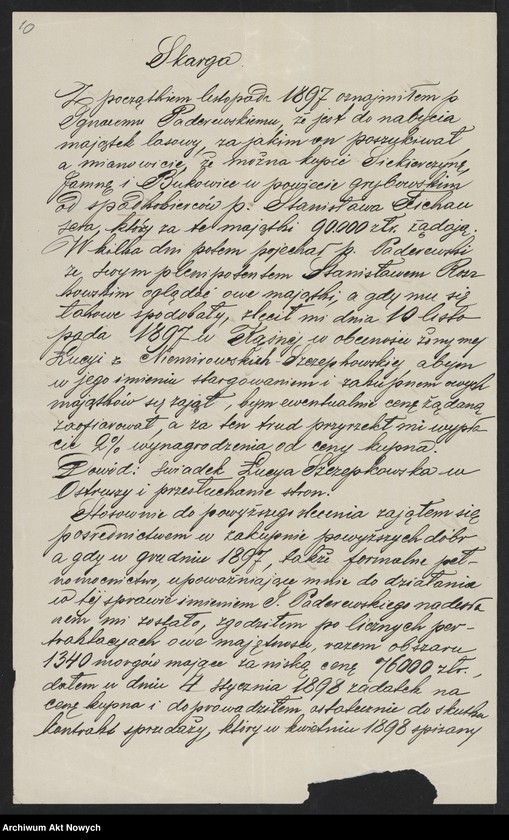 10
Skarga.
Z początkiem listopada 1897 oznajmiłem p.
Ignacemu Paderewskiemu, że jest do nabycia
majątek lasowy, za jakim on poszukiwał
a mianowicie, że można kupić Siekierczynę,
Jamnę i Bukowice w powiecie grybowskim
od spadkobierców p. Stanisława Feschau
seta, który za te majątki 90.000 złr. żądają.
W kilka dni potem pojechał p. Paderewski
ze swym plenipotentem Stanisławem Rosz
kowskim oglądać owe majątki, a gdy mu się
takowe spodobały, zlecił mi dnia 10 listo
pada 1897 w Kąśnej w obecności żony mej
Łucyi z Niemirowskich Szczepkowskiej, abym
w jego imieniu stargowaniem i zakupnem owych
majątków się zajął, bym ewentualnie cenę żądaną
zaofiarował a za ten trud przyrzekł mi wypła
cić 2% wynagrodzenia od ceny kupna.
Dowód: świadek Łucya Szczepkowska w
Ostruszy i przesłuchanie stron.
Stosownie do powyższego zlecenia zająłem się
pośrednictwem w zakupnie powyższych dóbr
a gdy w grudniu 1897, także formalne peł-
nomocnictwo, upoważniające mnie do działania
w tej sprawie imieniem I. Paderewskiego nadesła
nem mi zostało, zgodziłem po licznych per
traktacjach owe majętności, razem obszaru
1340 morgów mające za niską cenę 76000 złr.,
dałem w dniu 4 stycznia 1898 zadatek na
cenę kupna i doprowadziłem ostatecznie do skutku
kontrakt sprzedaży, który w kwietniu 1898 spisany
Archiwum Akt Nowych